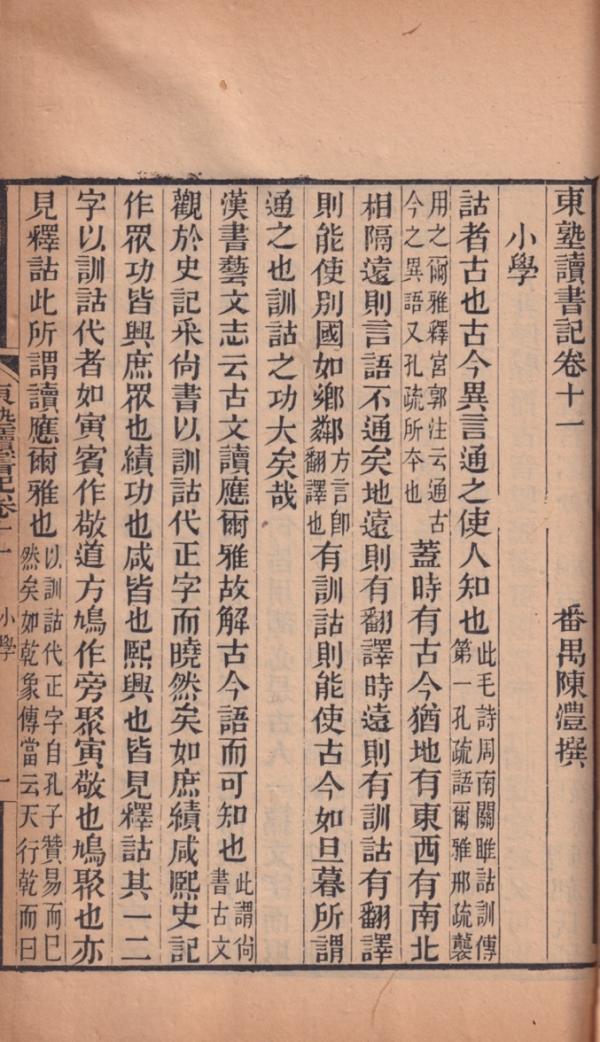 東塾讀書記卷十一 番禺陳澧撰
小學
詁者古也古今異言通之使人知也此毛詩周南關雎詁訓傳第一孔疏語爾雅邢疏襲
用之爾雅釋宮郭注云通古今之異語又孔疏所夲也蓋時有古今猶地有東西有南北
相隔遠則言語不通矣地遠則有翻譯時遠則有訓詁有翻譯
則能使别國如鄉鄰方言卽翻譯也有訓詁則能使古今如旦暮所謂
通之也訓詁之功大矣哉
漢書藝文志云古文讀應爾雅故解古今語而可知也此謂尙書古文
觀於史記采尙書以訓詁代正字而曉然矣如庶績咸熙史記
作眾功皆興庶眾也績功也咸皆也熙興也皆見釋詁其一二
字以訓詁代者如寅賓作敬道方鳩作旁聚寅敬也鳩聚也亦
見釋詁此所謂讀應爾雅也以訓詁代正字自孔子贊易而已然矣如乾象傳當云天行乾而曰
東塾讀書記卷十一 小學 一